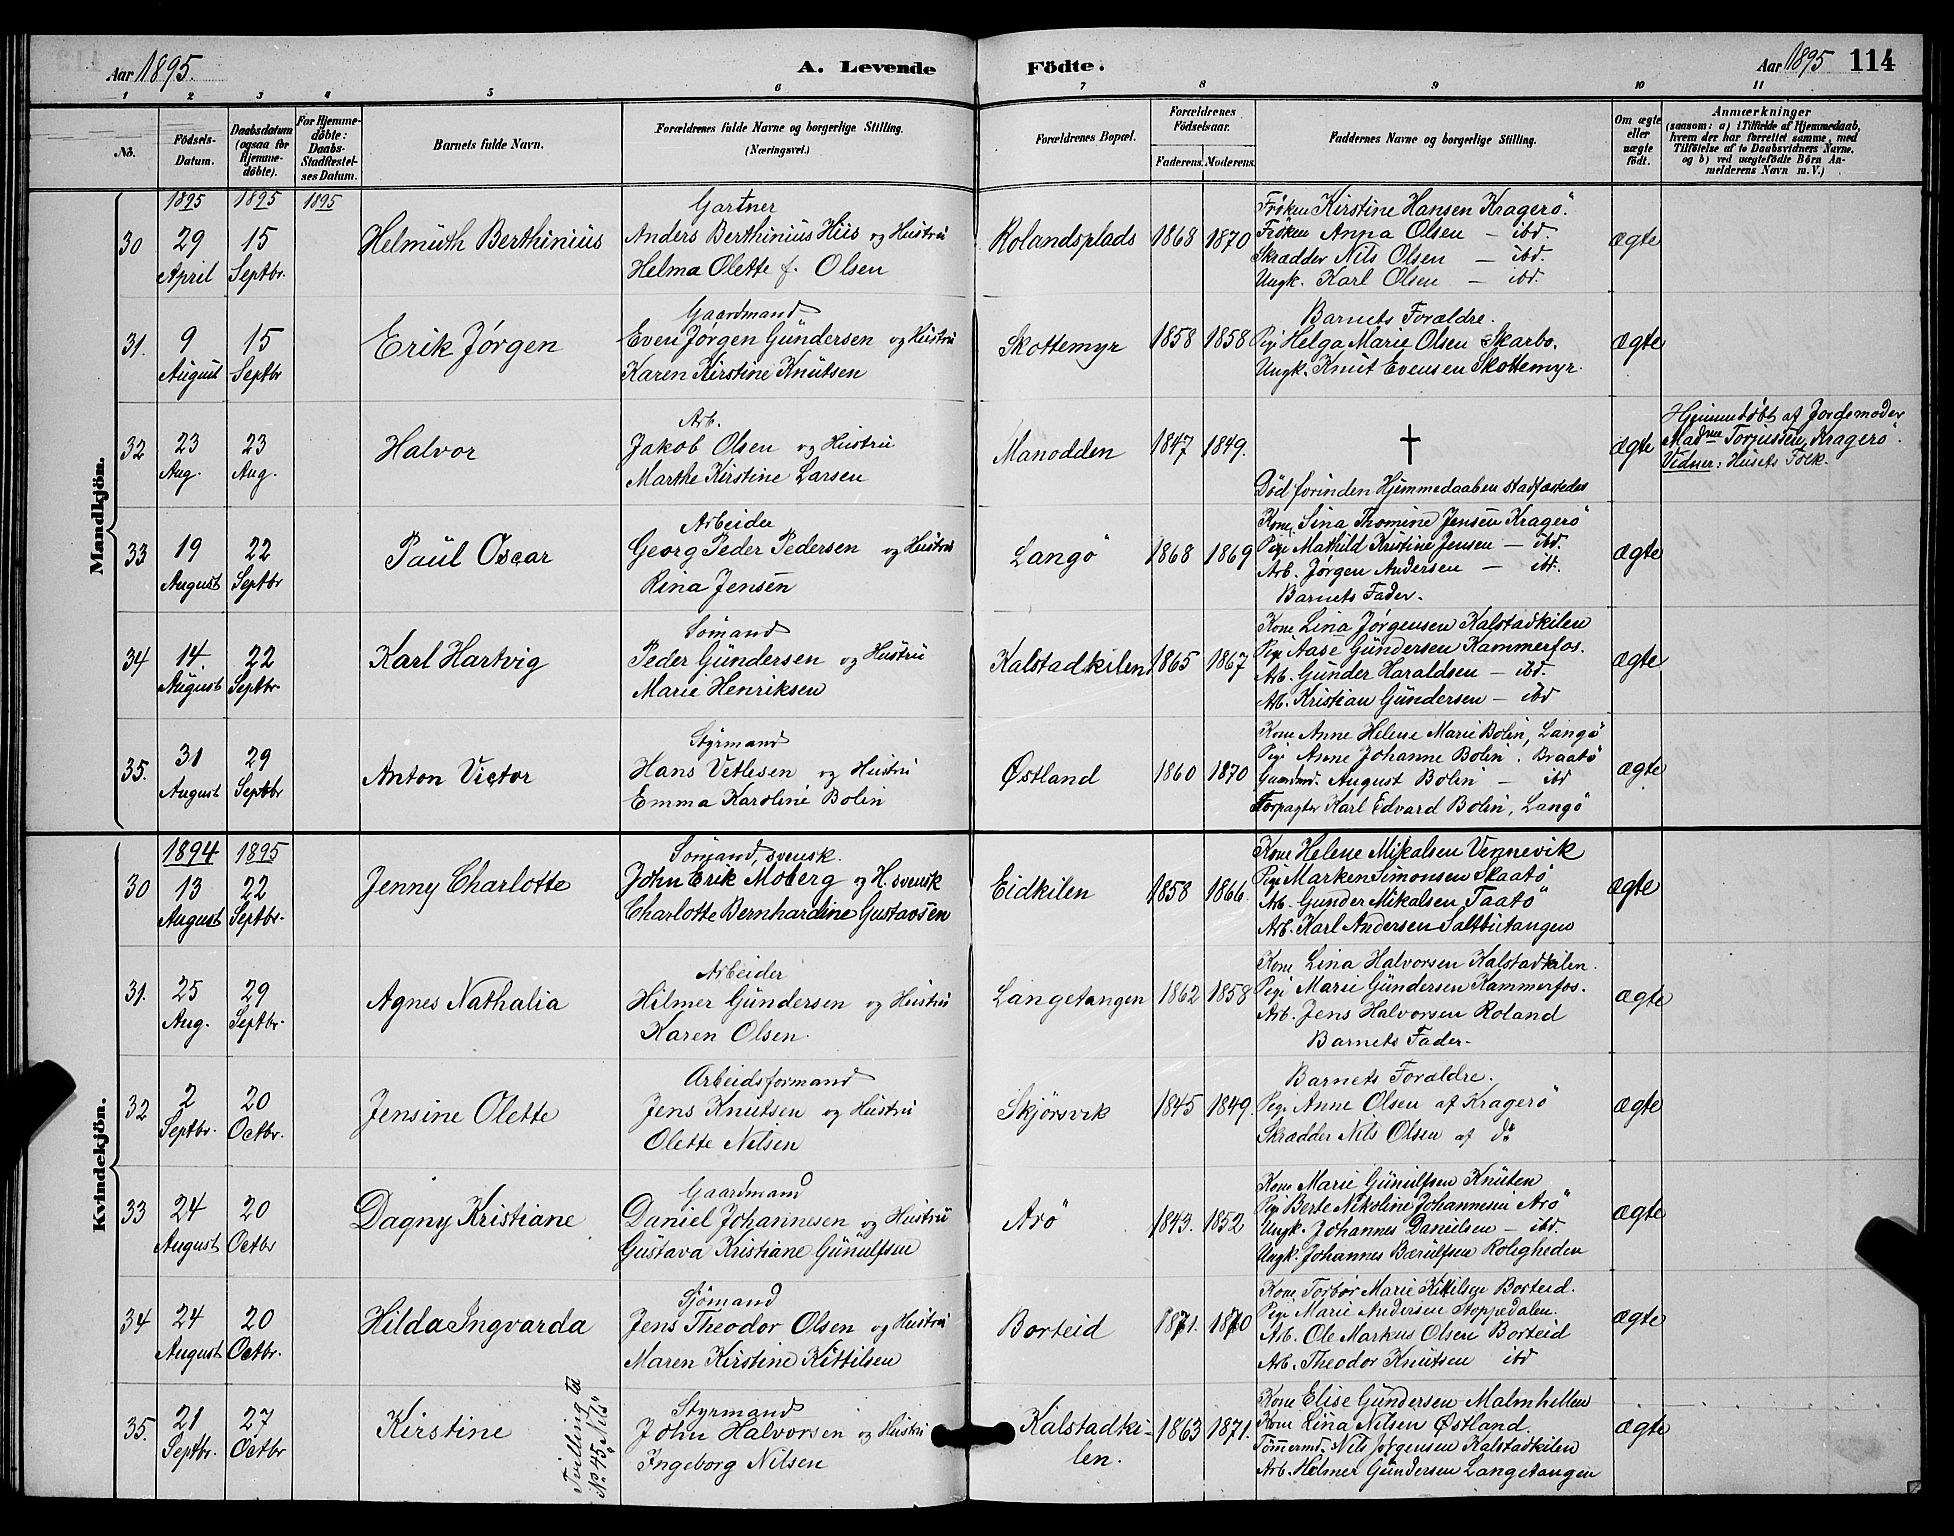 Aar 1895.
A. Levende Födte.
Aar 1895 114
1 2 3 4 5 6 7 8 9 10 11
No.
Födsels-Datum.
Daabsdatum (ogsaa for Hjemme-döbte).
For Hjemme-döbte: Daabs-Stadfæstel-ses Datum.
Barnets fulde Navn.
Forældrenes fulde Navne og borgerlige Stilling. (Næringsvei.)
Forældrenes Bopæl.
Forældrenes Födselsaar.
Faderens. Moderens.
Faddernes Navne og borgerlige Stilling.
Om ægte eller uægte födt.
Anmærkninger
(saasom: a) i Tilfælde af Hjemmedaab, hvem der har forrettet samme, med Tilföielse af to Daabsvidners Navne, og b) ved uægtefödte Börn Anmelderens Navn m. V.)
Mandkjön.
1895 1895 1895
30
29 April
15 Septbr.
Helmuth Berthinius
Gartner
Anders Berthinius Hiis og Hustru
Helma Olette f. Olsen
Rolandsplads
1868 1870
Frøken Kirstine Hansen Kragerö.
Frøken Anna Olsen — ibd.
Skrædder Nils Olsen — ibd.
Ungk. Karl Olsen — ibd.
Ægte
31.
9 August
15 Septbr
Erik Jørgen
Gaardmand
Even Jørgen Gundersen og Hustru
Karen Kirstine Knutsen
Skottemyr
1858 1858
Barnets Forældre.
Pige Helga Marie Olsen Skarbo.
Ungk. Knut Evensen Skottemyr.
Ægte
32
23 Aug.
23 Aug.
Halvor
Arb.
Jakob Olsen og Hustru
Marthe Kirstine Larsen
Manodden
1847 1849.
†
Død forinden Hjemmedaaben stadfæstedes
Ægte
Hjemmedøbt af Jordemoder
Madme Torjussen, Kragerö.
Vidner: Husets Folk.
33
19 August
22 Septbr
Paul Oscar
Arbeider
Georg Peder Pedersen og Hustru
Rina Jensen
Langö
1868 1869
Kone Sina Thomine Jensen Kragerö
Pige Mathild Kristine Jensen — ibd.
Arb. Jørgen Andersen — ibd.
Barnets Fader.
Ægte
34
14. August
22 Septbr
Karl Hartvig
Sömand
Peder Gundersen og Hustru
Marie Henriksen
Kalstadkilen
1865 1867
Kone Lina Jørgensen Kalstadkilen
Pige Aase Gundersen Kammerfos.
Arb. Gunder Haraldsen — ibd.
Arb. Kristian Gundersen — ibd
Ægte
35.
31 August
29 Septbr
Anton Victor
Styrmand
Hans Vetlesen og Hustru
Emma Karoline Bolin
Østland
1860 1870
Kone Anne Helene Marie Bolin, Langö
Pige Anne Johanne Bolin. Braatö
Gaardmd. August Bolin — ibd
Forpagter Karl Edvard Bolin, Langö
Ægte
Kvindekjön.
1894 1895
30
13 August
22 Septbr.
Jenny Charlotte
Sömand, svensk.
John Erik Moberg og H. svensk
Charlotte Bernhardine Gustavsen
Eidkilen
1858 1866.
Kone Helene Mikalsen Vennevik
Pige Marken Simonsen Skaatö
Arb. Gunder Mikalsen Taatö
Arb. Karl Andersen Saltbutangen
Ægte
31.
25 Aug.
29 Septbr.
Agnes Nathalia
Arbeider
Hilmer Gundersen og Hustru
Karen Olsen.
Langetangen
1862 1858
Kone Lina Halvorsen Kalstadkilen.
Pige Marie Gundersen Kammerfos.
Arb. Jens Halvorsen Roland
Barnets Fader.
Ægte
32
2 Septbr.
20 Octbr.
Jensine Olette
Arbeidsformand
Jens Knutsen og Hustru
Olette Nilsen
Skjörsvik
1845 1849.
Barnets Forældre.
Pige Anne Olsen af Kragerö
Skrædder Nils Olsen af do
Ægte
33
24 August
20 Octbr
Dagny Kristiane
Gaardmand
Daniel Johannesen og Hustru
Gustava Kristiane Gunulfsen
Arö
1843. 1852
Kone Marie Gunulfsen Knuten
Pige Berte Nikoline Johannesen Arö
Ungk. Johannes Danielsen — ibd.
Ungk. Johannes Bærulfsen Roligheden
Ægte
34
24 August
20 Octbr.
Hilda Ingvarda
Sjömand
Jens Theodor Olsen og Hustru
Maren Kirstine Kittilsen
Borteid
1871. 1870
Kone Torbor Marie Kittilsen Borteid.
Pige Marie Andersen Stoppedalen.
Arb. Ole Markus Olsen Borteid
Arb. Theodor Knutsen ibd
Ægte
35.
21 Septbr.
27 Octbr
Kirstine
Tvilling til No 45 "Nils"
Styrmand
John Halvorsen og Hustru
Ingeborg Nilsen
Kalstadkilen.
1863 1871.
Kone Elise Gundersen Malmhellen
Kone Lina Nilsen Østland.
Tömmermd. Nils Jørgensen Kalstadkilen
Arb. Helmer Gundersen Langetangen
Ægte